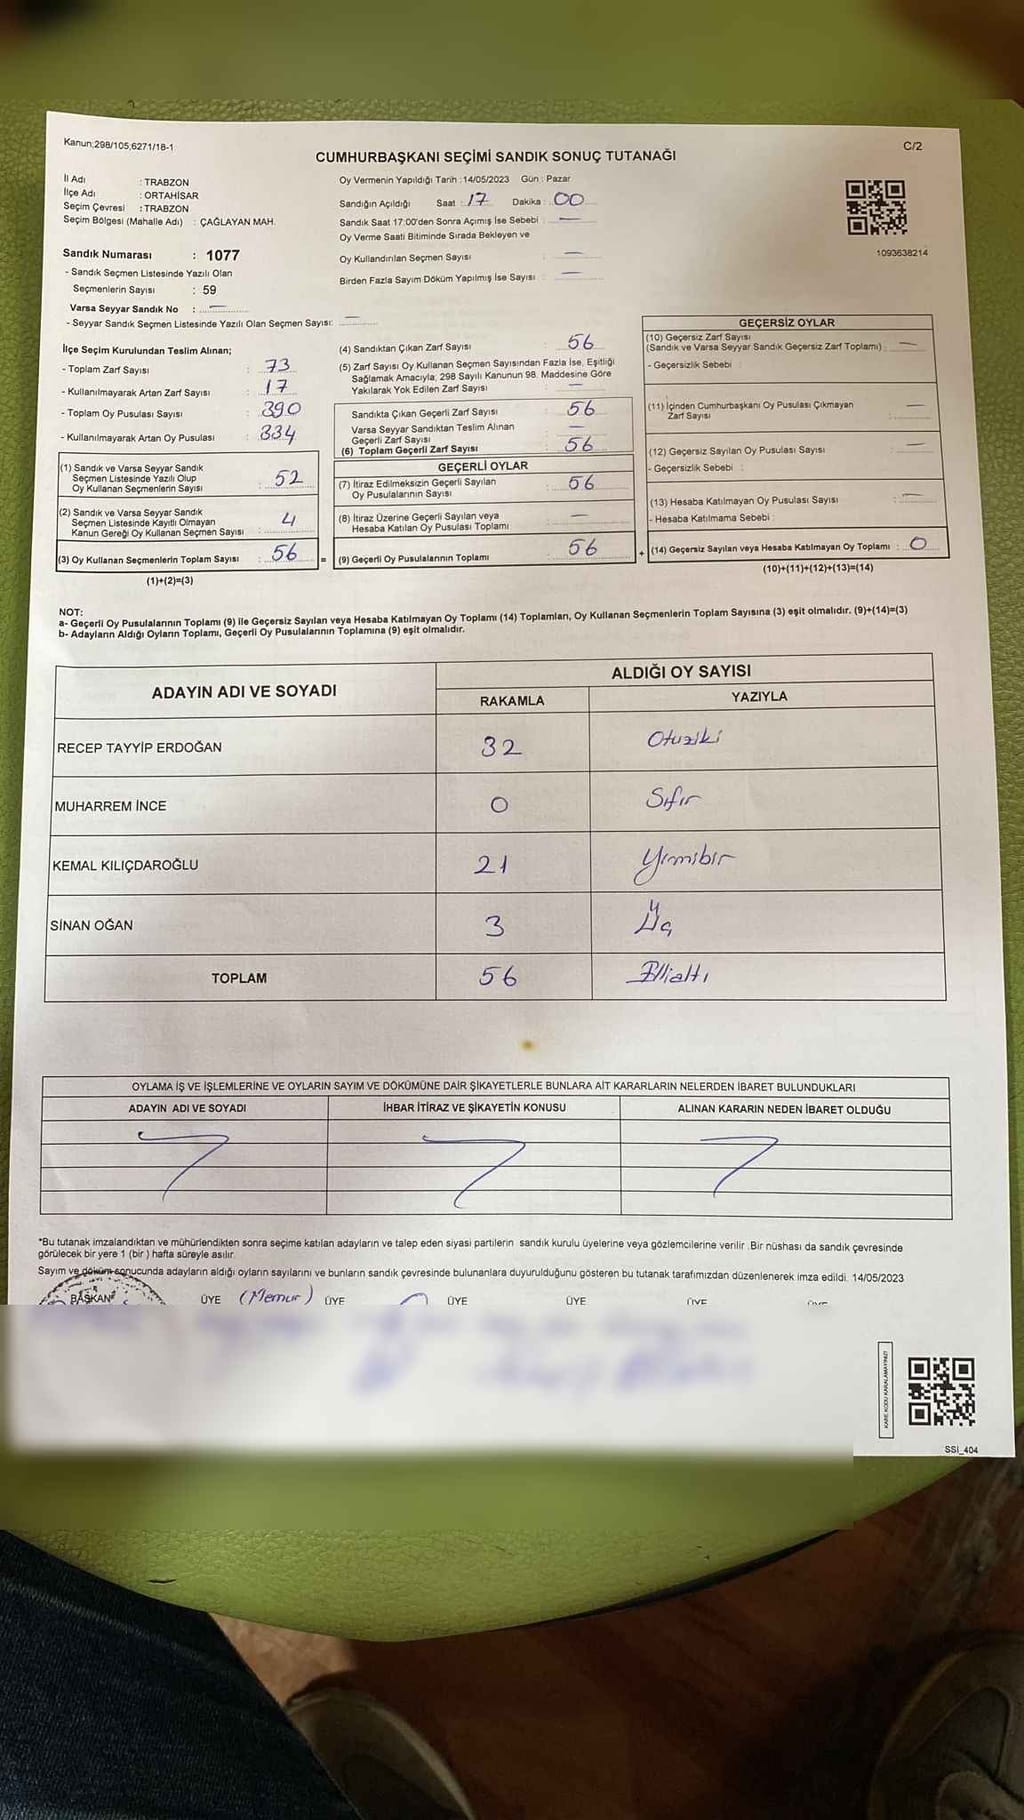 Kanun;298/105,6271/18-1
C/2
CUMHURBAŞKANI SEÇİMİ SANDIK SONUÇ TUTANAĞI
İl Adı : TRABZON
İlçe Adı : ORTAHİSAR
Seçim Çevresi : TRABZON
Seçim Bölgesi (Mahalle Adı) : ÇAĞLAYAN MAH.
Sandık Numarası : 1077
- Sandık Seçmen Listesinde Yazılı Olan
Seçmenlerin Sayısı : 59
Varsa Seyyar Sandık No : —
- Seyyar Sandık Seçmen Listesinde Yazılı Olan Seçmen Sayısı: —
Oy Vermenin Yapıldığı Tarih :14/05/2023 Gün : Pazar
Sandığın Açıldığı Saat : 17 Dakika : 00
Sandık Saat 17:00'den Sonra Açımış İse Sebebi : —
Oy Verme Saati Bitiminde Sırada Bekleyen ve
Oy Kullandırılan Seçmen Sayısı : —
Birden Fazla Sayım Döküm Yapılmış İse Sayısı : —
1093638214
İlçe Seçim Kurulundan Teslim Alınan;
- Toplam Zarf Sayısı : 73
- Kullanılmayarak Artan Zarf Sayısı : 17
- Toplam Oy Pusulası Sayısı : 390
- Kullanılmayarak Artan Oy Pusulası : 334
(1) Sandık ve Varsa Seyyar Sandık
Seçmen Listesinde Yazılı Olup
Oy Kullanan Seçmenlerin Sayısı : 52
(2) Sandık ve Varsa Seyyar Sandık
Seçmen Listesinde Kayıtlı Olmayan
Kanun Gereği Oy Kullanan Seçmen Sayısı : 4
(3) Oy Kullanan Seçmenlerin Toplam Sayısı : 56 =
(1)+(2)=(3)
(4) Sandıktan Çıkan Zarf Sayısı : 56
(5) Zarf Sayısı Oy Kullanan Seçmen Sayısından Fazla İse, Eşitliği
Sağlamak Amacıyla, 298 Sayılı Kanunun 98. Maddesine Göre
Yakılarak Yok Edilen Zarf Sayısı : —
Sandıkta Çıkan Geçerli Zarf Sayısı : 56
Varsa Seyyar Sandıktan Teslim Alınan
Geçerli Zarf Sayısı : —
(6) Toplam Geçerli Zarf Sayısı : 56
GEÇERLİ OYLAR
(7) İtiraz Edilmeksizin Geçerli Sayılan
Oy Pusulalarının Sayısı : 56
(8) İtiraz Üzerine Geçerli Sayılan veya
Hesaba Katılan Oy Pusulası Toplamı : —
(9) Geçerli Oy Pusulalarının Toplamı : 56 +
GEÇERSİZ OYLAR
(10) Geçersiz Zarf Sayısı
(Sandık ve Varsa Seyyar Sandık Geçersiz Zarf Toplamı) : —
- Geçersizlik Sebebi :
(11) İçinden Cumhurbaşkanı Oy Pusulası Çıkmayan
Zarf Sayısı : —
(12) Geçersiz Sayılan Oy Pusulası Sayısı : —
- Geçersizlik Sebebi :
(13) Hesaba Katılmayan Oy Pusulası Sayısı : —
- Hesaba Katılmama Sebebi :
(14) Geçersiz Sayılan veya Hesaba Katılmayan Oy Toplamı : 0
(10)+(11)+(12)+(13)=(14)
NOT:
a- Geçerli Oy Pusulalarının Toplamı (9) ile Geçersiz Sayılan veya Hesaba Katılmayan Oy Toplamı (14) Toplamları, Oy Kullanan Seçmenlerin Toplam Sayısına (3) eşit olmalıdır. (9)+(14)=(3)
b- Adayların Aldığı Oyların Toplamı, Geçerli Oy Pusulalarının Toplamına (9) eşit olmalıdır.
ADAYIN ADI VE SOYADI ALDIĞI OY SAYISI
RAKAMLA YAZIYLA
RECEP TAYYİP ERDOĞAN 32 Otuziki
MUHARREM İNCE 0 Sıfır
KEMAL KILIÇDAROĞLU 21 Yirmibir
SİNAN OĞAN 3 Üç
TOPLAM 56 Ellialtı
OYLAMA İŞ VE İŞLEMLERİNE VE OYLARIN SAYIM VE DÖKÜMÜNE DAİR ŞİKAYETLERLE BUNLARA AİT KARARLARIN NELERDEN İBARET BULUNDUKLARI
ADAYIN ADI VE SOYADI İHBAR İTİRAZ VE ŞİKAYETİN KONUSU ALINAN KARARIN NEDEN İBARET OLDUĞU
*Bu tutanak imzalandıktan ve mühürlendikten sonra seçime katılan adayların ve talep eden siyasi partilerin sandık kurulu üyelerine veya gözlemcilerine verilir .Bir nüshası da sandık çevresinde
görülecek bir yere 1 (bir ) hafta süreyle asılır.
Sayım ve döküm sonucunda adayların aldığı oyların sayılarını ve bunların sandık çevresinde bulunanlara duyurulduğunu gösteren bu tutanak tarafımızdan düzenlenerek imza edildi. 14/05/2023
BAŞKAN ÜYE (Memur) ÜYE ÜYE ÜYE ÜYE ÜYE
KARE KODU KARALAMAYINIZ!
SSİ_404